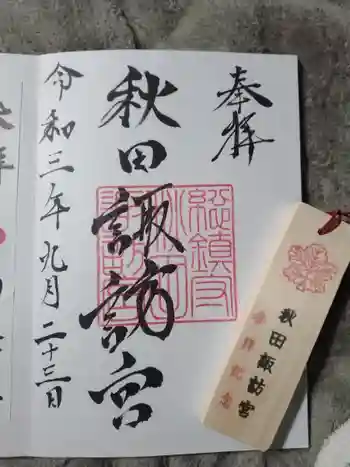 奉拝
秋田諏訪宮
令和三年九月二十三日
秋田諏訪宮
参拝記念